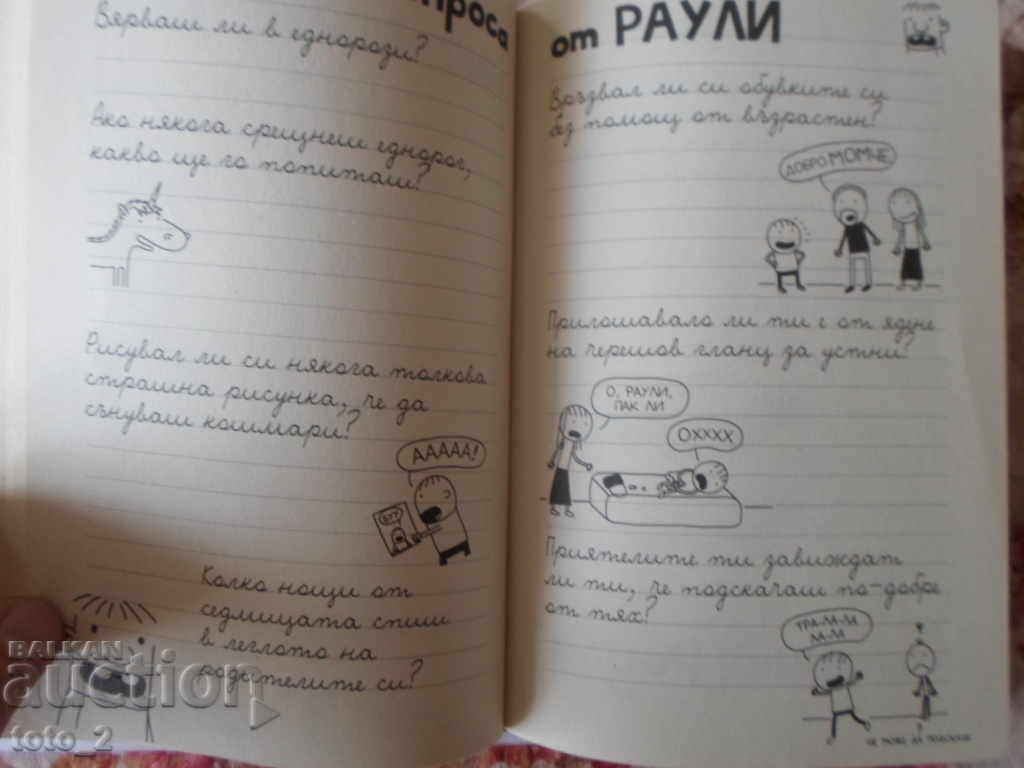 въпроса
Вярваш ли в еднорози?
Ако някога срещнеш еднорог,
какво ще го попиташ?
Рисувал ли си някога толкова
страшна рисунка, че да
сънуваш кошмари?
ААААА!
Колко нощи от
седмицата спиш
в леглото на
родителите си?
от РАУЛИ
Връзвал ли си обувките си
без помощ от възрастен?
ДОБРО МОМЧЕ
Прилошавало ли ти е от ядене
на черешов гланц за устни?
О, РАУЛИ,
ПАК ЛИ
ОХХХХ
Приятелите ти завиждат
ли ти, че подскачаш по-добре
от тях?
ТРА-М-М
М-М
НЕ МОЖЕ ДА ПОДСКАЧА
BALKAN
auction
toto_2